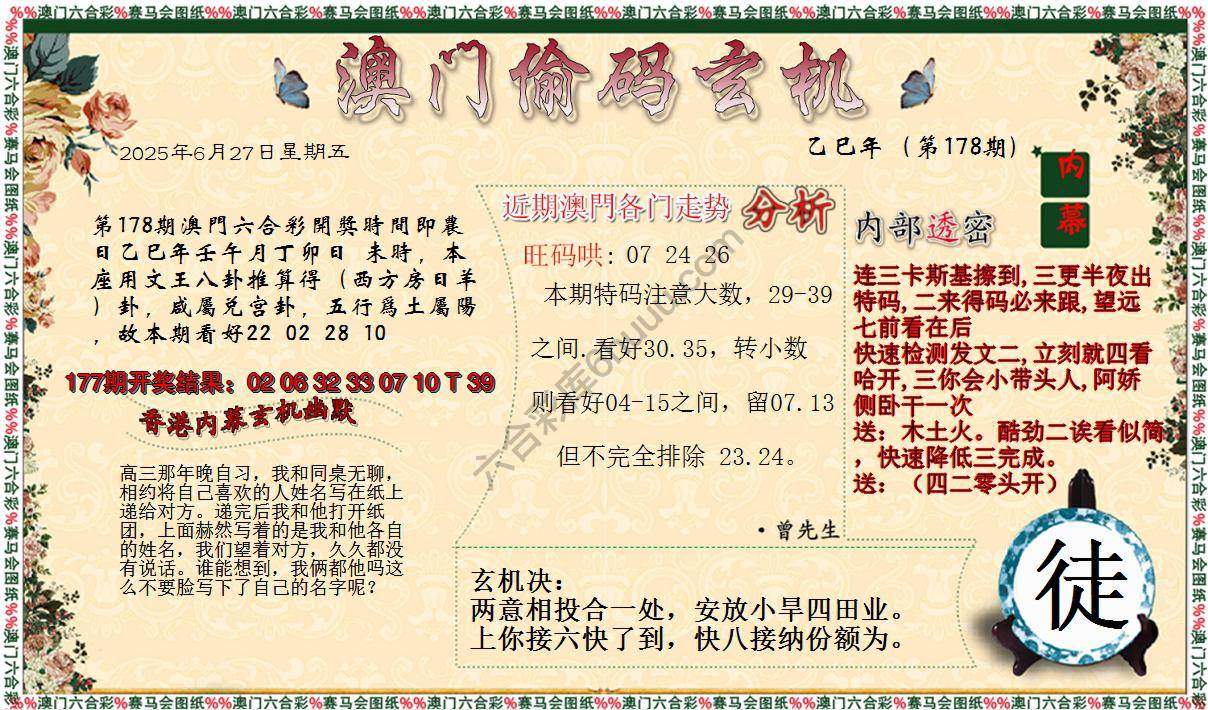 %%澳门六合彩%赛马会图纸%%澳门六合彩%赛马会图纸%%澳门六合彩%赛马会图纸%%澳门六合彩%赛马会图纸%%澳门六合彩%赛马会图纸%%澳门六合彩%赛马会图纸%%
澳门偷码玄机
2025年6月27日星期五
乙巳年（第178期）
内幕
第178期澳門六合彩開獎時間即農
日乙巳年壬午月丁卯日 未時，本
座用文王八卦推算得（西方房日羊
）卦，咸屬兌宫卦，五行爲土屬陽
，故本期看好22 02 28 10
177期开奖结果：02 06 32 33 07 10 T 39
香港内幕玄机幽默
高三那年晚自习，我和同桌无聊，
相约将自己喜欢的人姓名写在纸上
递给对方。递完后我和他打开纸
团，上面赫然写着的是我和他各自
的姓名，我们望着对方，久久都没
有说话。谁能想到，我俩都他吗这
么不要脸写下了自己的名字呢？
近期澳門各门走势 分析
旺码哄: 07 24 26
本期特码注意大数，29-39
之间.看好30.35，转小数
则看好04-15之间，留07.13
但不完全排除 23.24。
·曾先生
内部透密
连三卡斯基擦到,三更半夜出
特码,二来得码必来跟,望远
七前看在后
快速检测发文二,立刻就四看
哈开,三你会小带头人,阿娇
侧卧干一次
送：木土火。酷劲二诶看似简
，快速降低三完成。
送：（四二零头开）
玄机决：
两意相投合一处，安放小旱四田业。
上你接六快了到，快八接纳份额为。
徒
%%澳门六合彩%赛马会图纸%%澳门六合彩%赛马会图纸%%澳门六合彩%赛马会图纸%%澳门六合彩%赛马会图纸%%澳门六合彩%赛马会图纸%%澳门六合彩%赛马会图纸%%